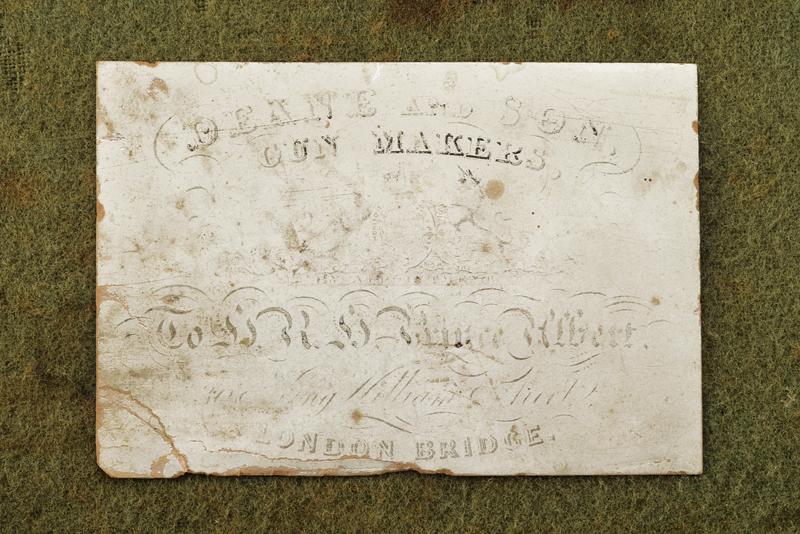 DEANE AND SON,
GUN MAKERS,
To H. R. H. Prince Albert.
King William Street
LONDON BRIDGE.